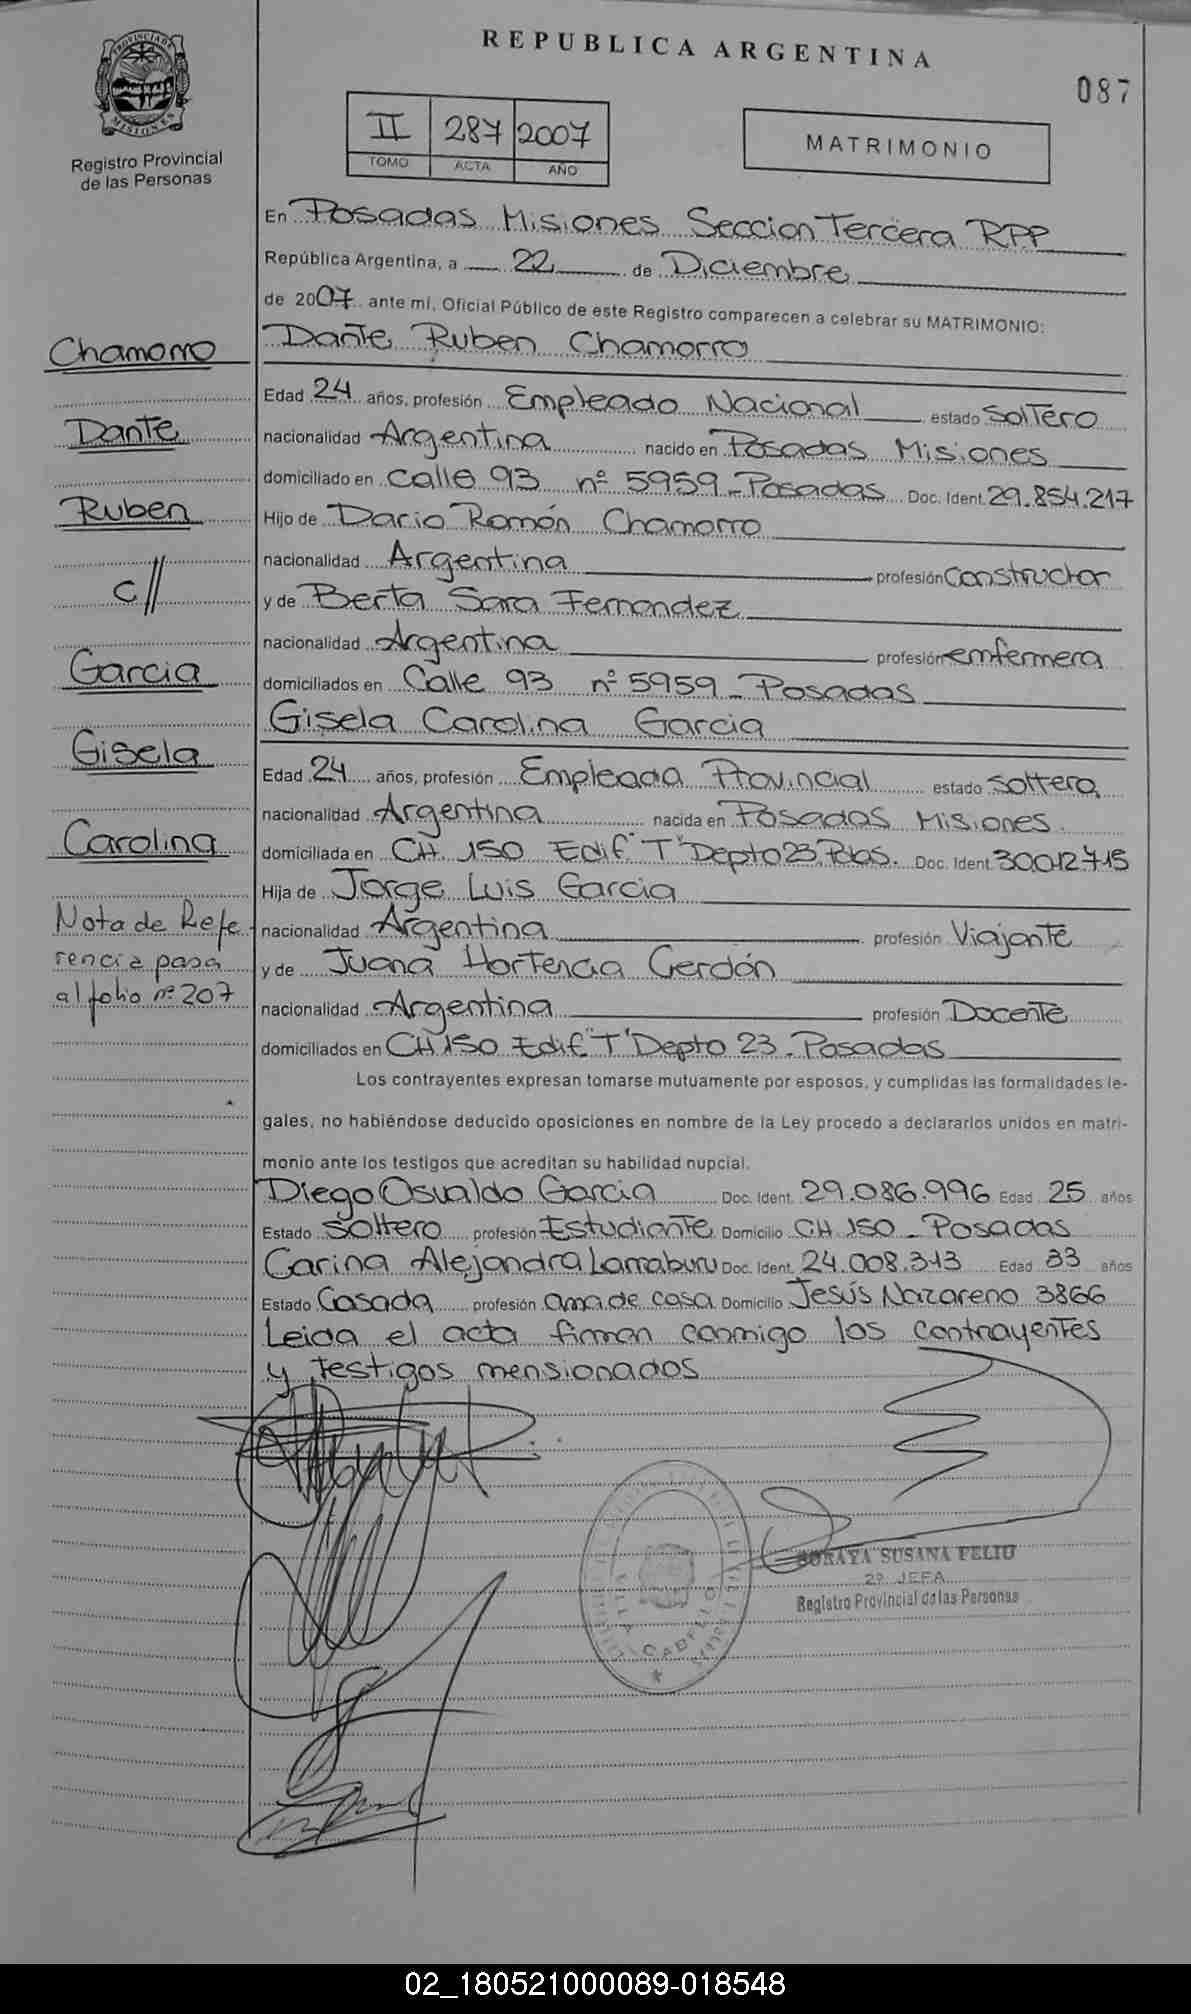 REPUBLICA ARGENTINA
087
PROVINCIA DE MISIONES
Registro Provincial
de las Personas
II 287 2007
TOMO ACTA AÑO
MATRIMONIO
En Posadas Misiones Seccion Tercera RPP
República Argentina, a 22 de Diciembre
de 2007 ante mí, Oficial Público de este Registro comparecen a celebrar su MATRIMONIO:
Dante Ruben Chamorro
Edad 24 años, profesión Empleado Nacional estado Soltero
nacionalidad Argentina nacido en Posadas Misiones
domiciliado en Calle 93 nº 5959 - Posadas Doc. Ident. 29.854.217
Hijo de Dario Román Chamorro
nacionalidad Argentina profesión Constructor
y de Berta Sara Fernandez
nacionalidad Argentina profesión emfermera
domiciliados en Calle 93 nº 5959 - Posadas
Gisela Carolina Garcia
Edad 24 años, profesión Empleada Provincial estado Soltera
nacionalidad Argentina nacida en Posadas Misiones
domiciliada en CH. 150 Edif "T" Depto 23 Pdas. Doc. Ident. 30.012.715
Hija de Jorge Luis Garcia
nacionalidad Argentina profesión Viajante
y de Juana Hortencia Cerdón
nacionalidad Argentina profesión Docente
domiciliados en CH 150 Edif "T" Depto 23 - Posadas
Los contrayentes expresan tomarse mutuamente por esposos, y cumplidas las formalidades le-
gales, no habiéndose deducido oposiciones en nombre de la Ley procedo a declararlos unidos en matri-
monio ante los testigos que acreditan su habilidad nupcial.
Diego Osvaldo Garcia Doc. Ident. 29.086.996 Edad 25 años
Estado Soltero profesión Estudiante Domicilio CH 150 - Posadas
Carina Alejandra Larraburu Doc. Ident. 24.008.313 Edad 33 años
Estado Casada profesión ama de casa Domicilio Jesús Nazareno 3866
Leida el acta firman conmigo los contrayentes
y testigos mensionados
Chamorro
Dante
Ruben
c//
Garcia
Gisela
Carolina
Nota de Refe
rencia pasa
al folio nº 207
SORAYA SUSANA FELIU
2º JEFA
Registro Provincial de las Personas
02_180521000089-018548